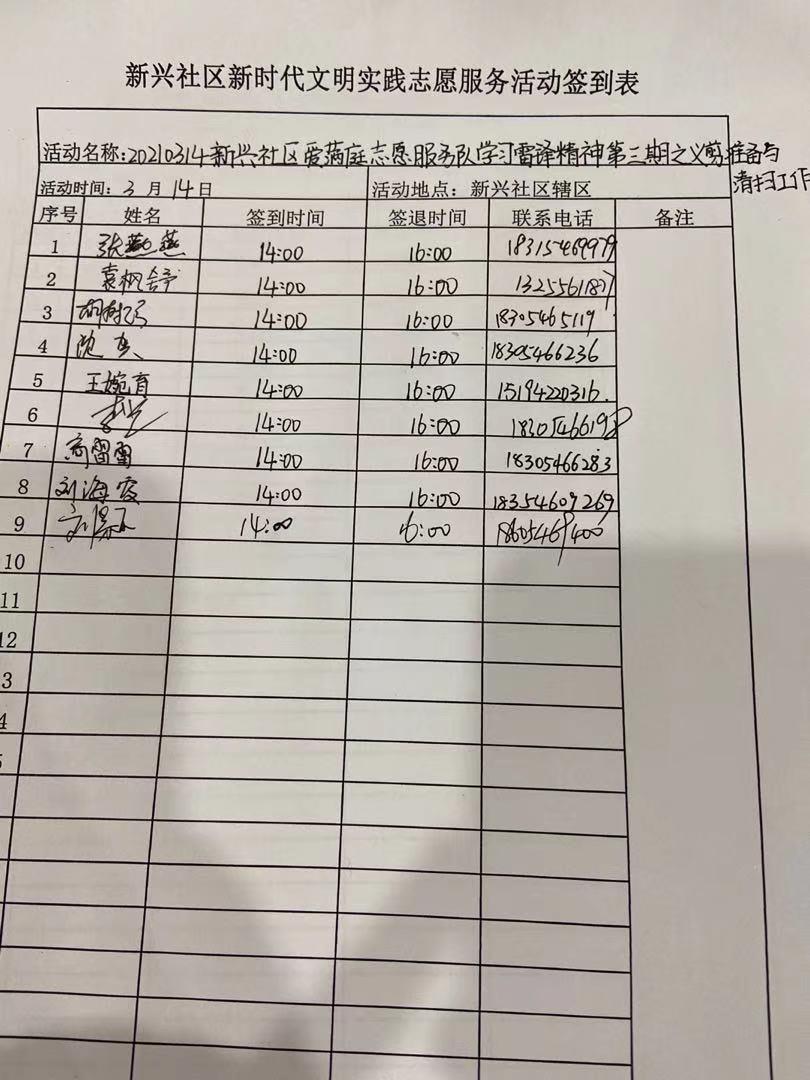 新兴社区新时代文明实践志愿服务活动签到表
活动名称:20210314新兴社区爱满庭志愿服务队学习雷锋精神第三期之义剪准备与
清扫工作
活动时间: 3 月 14 日 活动地点: 新兴社区辖区
序号 姓名 签到时间 签退时间 联系电话 备注
1 张燕燕 14:00 16:00 18315469979
2 14:00 16:00 13255611877
3 14:00 16:00 18305465119
4 14:00 16:00 18305466236
5 王婉育 14:00 16:00 15194220316.
6 14:00 16:00 18305466198
7 商雷雷 14:00 16:00 18305466283
8 刘海霞 14:00 16:00 18354609269
9 14:00 16:00
10
11
12
3
4
5